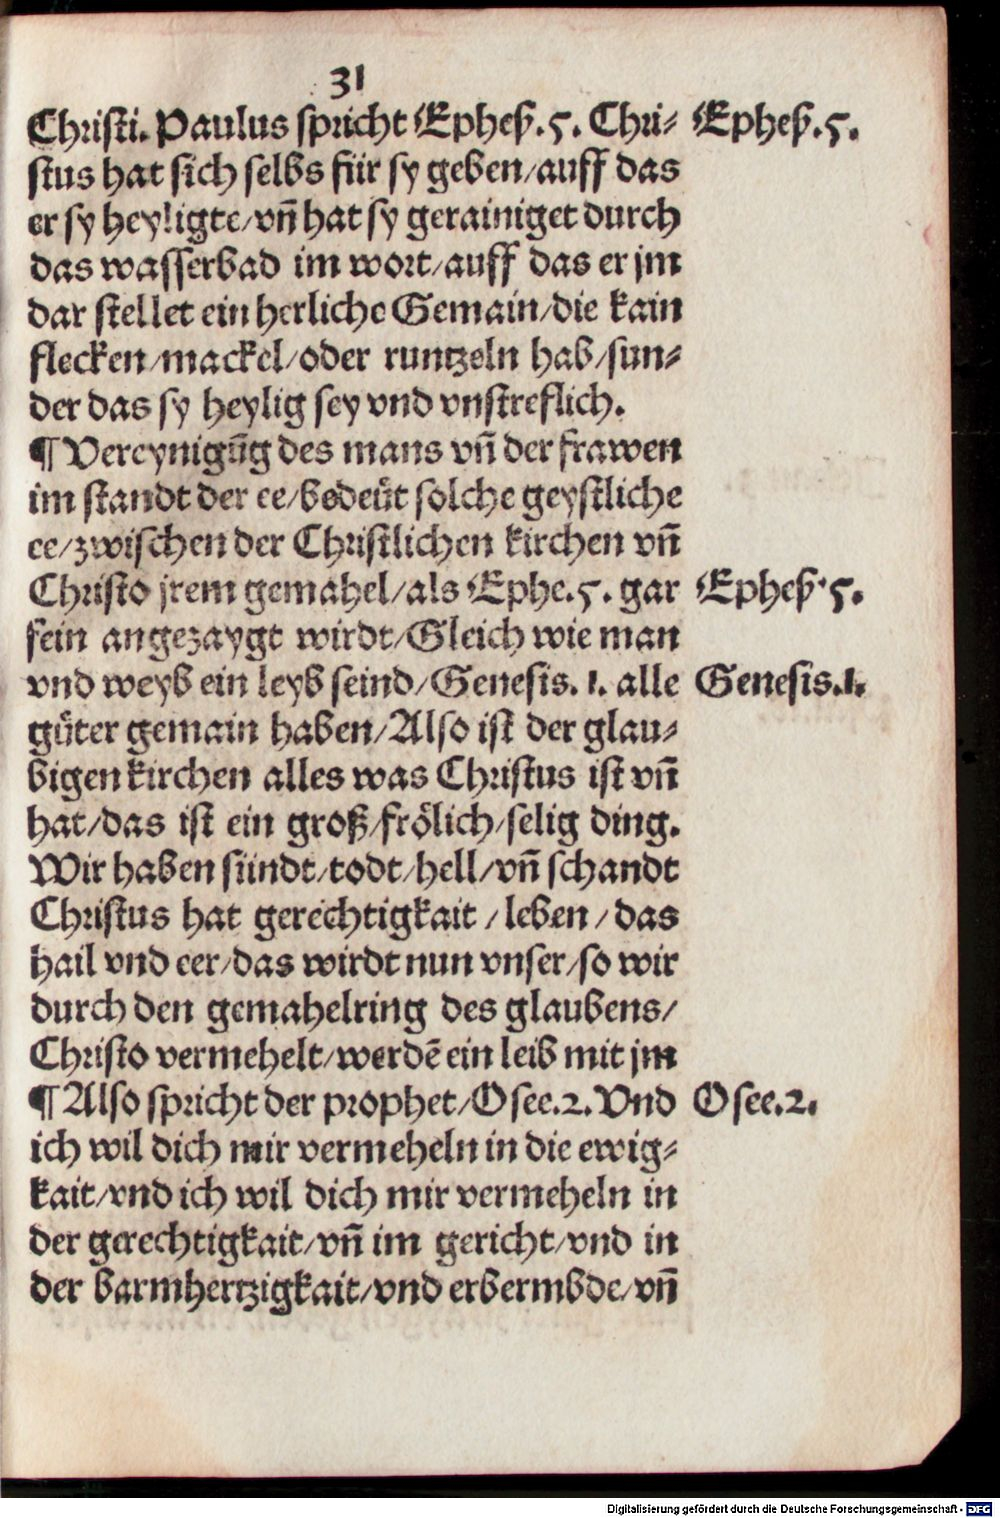 31
Christi. Paulus spricht Epheß.5. Chri⸗ Epheß.5.
stus hat sich selbs für sy geben/auff das
er sy heyligte/vn̄ hat sy gerainiget durch
das wasserbad im wort/auff das er jm
dar stellet ein herliche Gemain/die kain
flecken/mackel/oder runtzeln hab/sun⸗
der das sy heylig sey vnd vnstreflich.
¶ Vereynigūg des mans vn̄ der frawen
im standt der ee/bedeüt solche geystliche
ee/zwischen der Christlichen kirchen vn̄
Christo jrem gemahel/als Ephe.5. gar Epheß.5.
fein angezaygt wirdt/Gleich wie man
vnd weyb ein leyb seind/Genesis. 1. alle Genesis.1.
gůter gemain haben/Also ist der glau⸗
bigen kirchen alles was Christus ist vn̄
hat/das ist ein groß/frölich/selig ding.
Wir haben sündt/todt/hell/vn̄ schandt
Christus hat gerechtigkait / leben / das
hail vnd eer/das wirdt nun vnser/so wir
durch den gemahelring des glaubens/
Christo vermehelt/werdē ein leib mit jm
¶ Also spricht der prophet/Osee.2. Vnd Osee.2.
ich wil dich mir vermeheln in die ewig⸗
kait/vnd ich wil dich mir vermeheln in
der gerechtigkait/vn̄ im gericht/vnd in
der barmhertzigkait/vnd erbermbde/vn̄
Digitalisierung gefördert durch die Deutsche Forschungsgemeinschaft - DFG